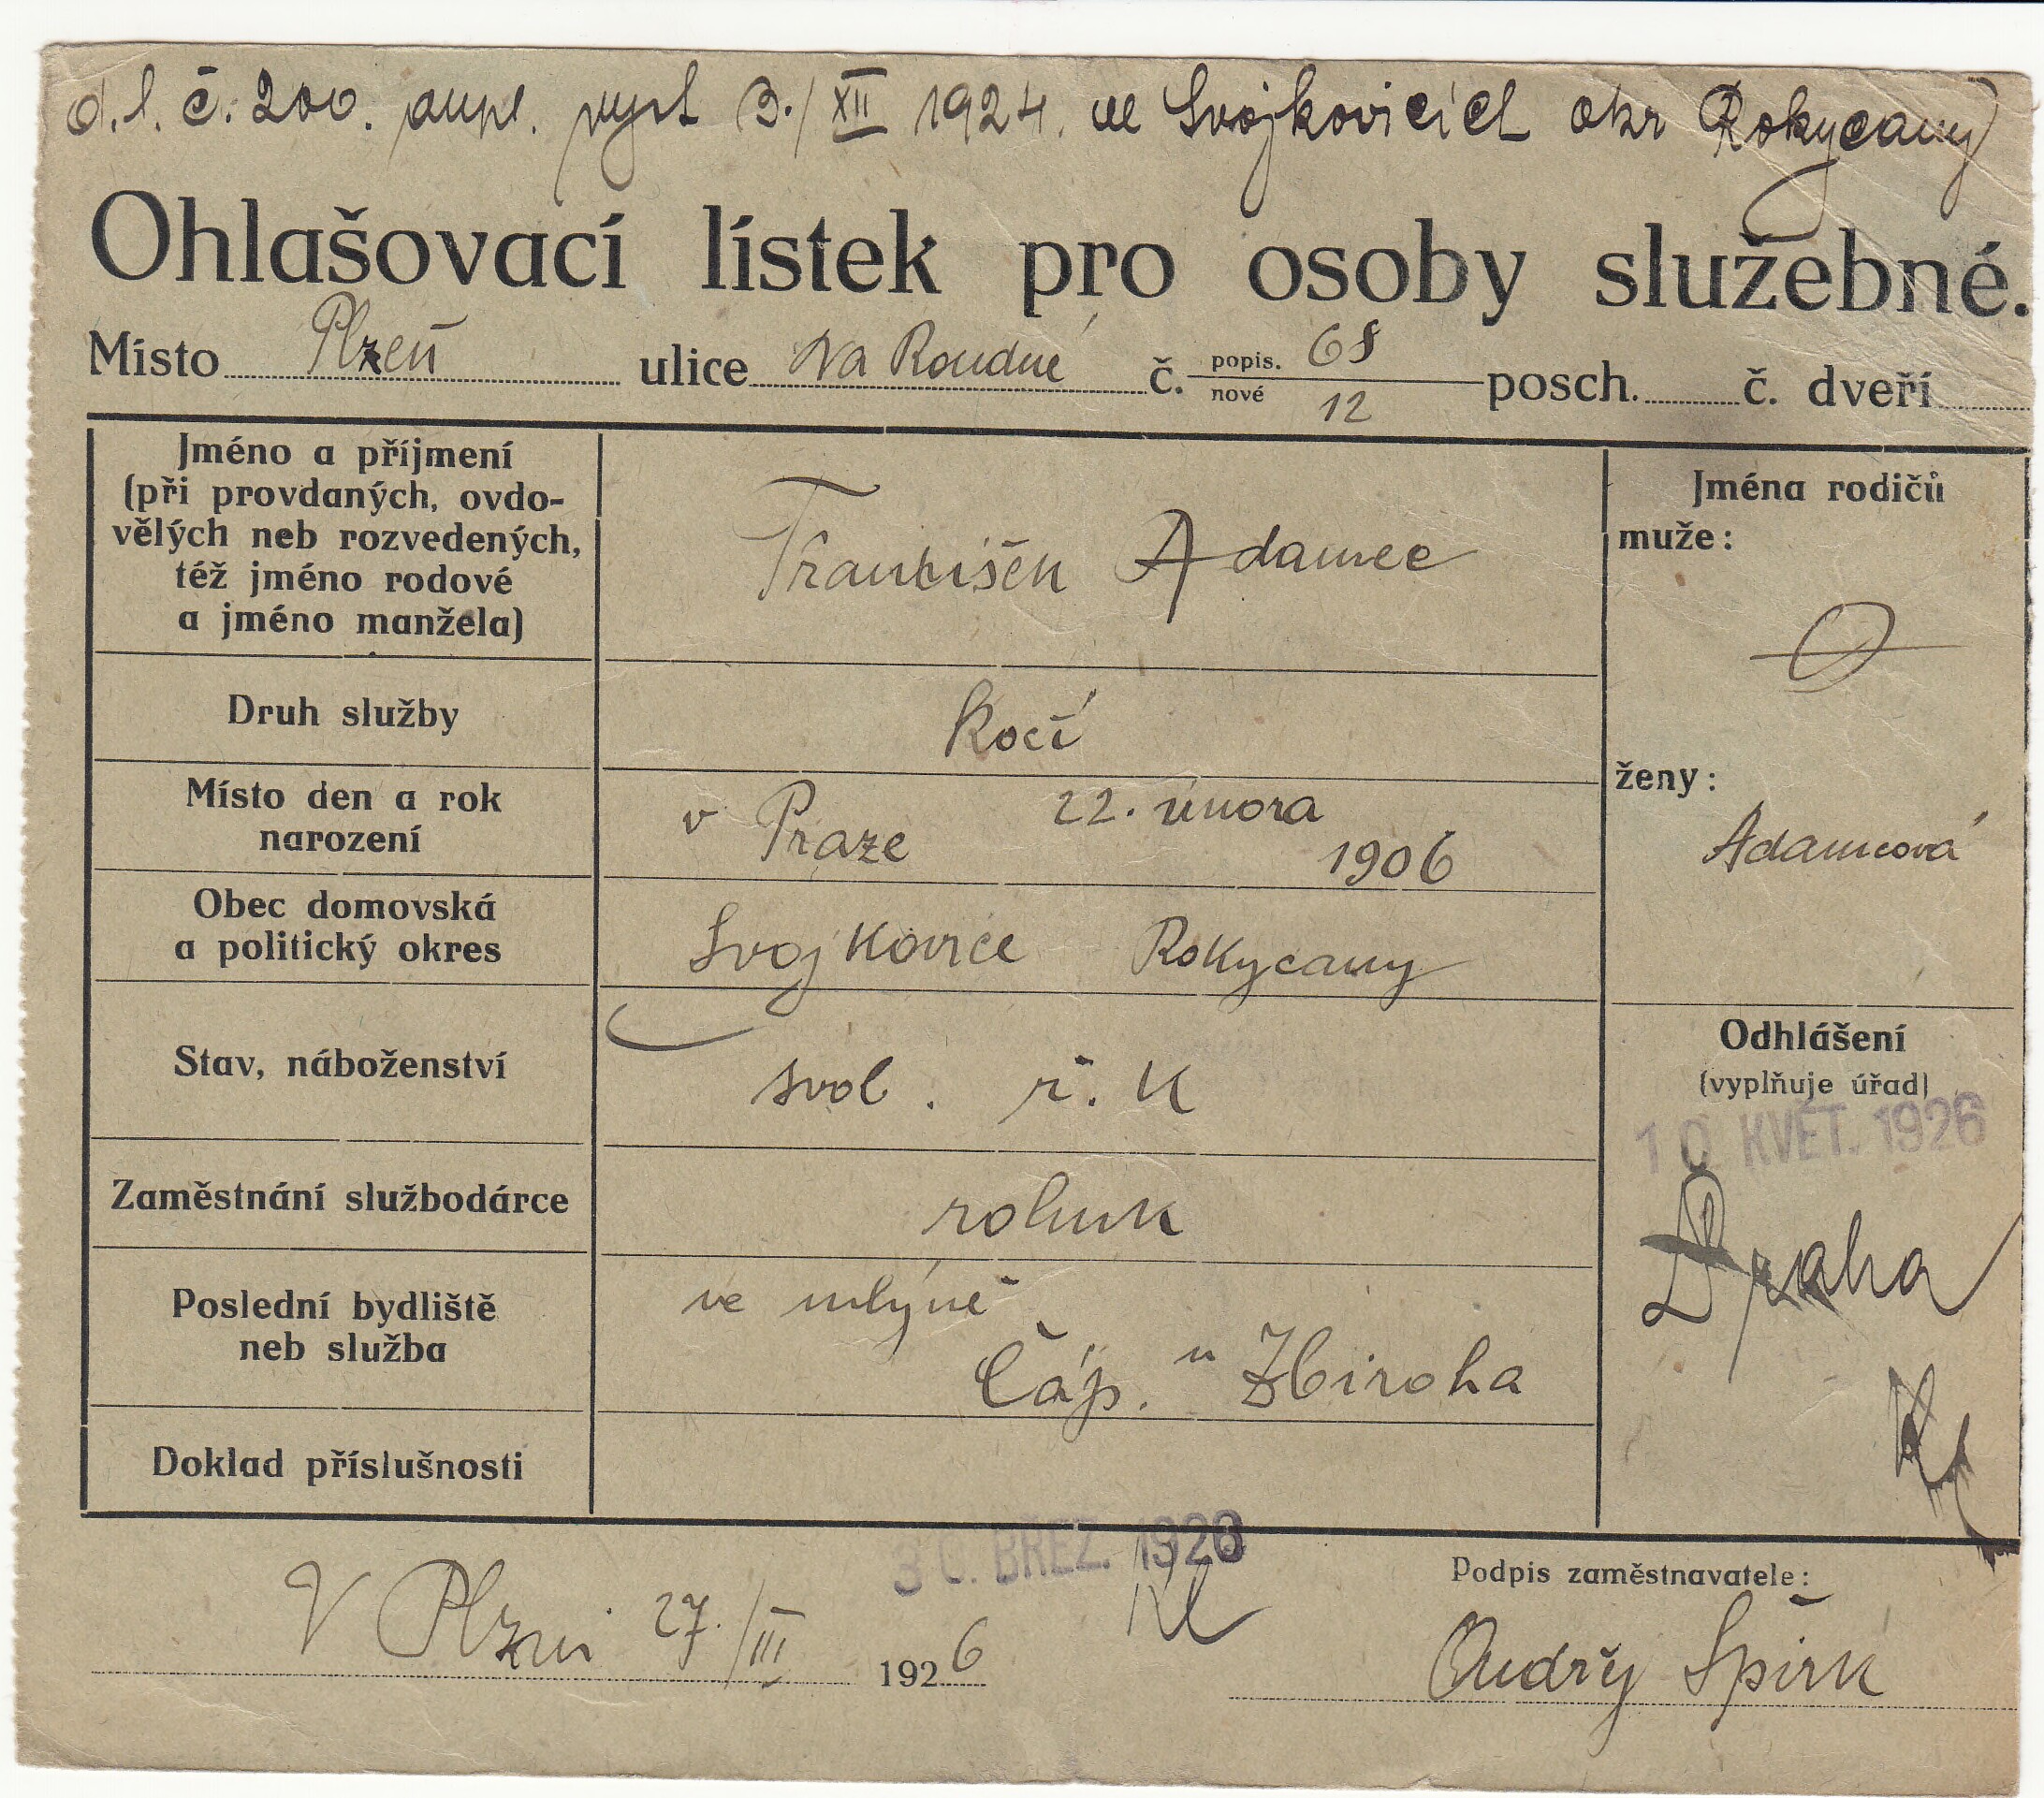 d. l. č. 200. dupl. vyst 3./XII 1924. ve Svojkovicích okr Rokycany
Ohlašovací lístek pro osoby služebné.
Místo Plzeň ulice Na Roudné č. popis. 68 posch. č. dveří
nové 12
Jméno a příjmení
(při provdaných, ovdo-
vělých neb rozvedených,
též jméno rodové
a jméno manžela)
František Adamec
Jména rodičů
muže:
ženy:
Adamcová
Druh služby
Kočí
Místo den a rok
narození
v Praze 22. února
1906
Obec domovská
a politický okres
Svojkovice Rokycany
Stav, náboženství
svob. ř. K
Odhlášení
(vyplňuje úřad)
10. KVĚT. 1926
Praha
Zaměstnání službodárce
rolník
Poslední bydliště
neb služba
ve mlýně
Čáp. u Zbiroha
Doklad příslušnosti
30. BŘEZ. 1926
V Plzni 27./III 1926
Podpis zaměstnavatele:
Ondřej Špirk